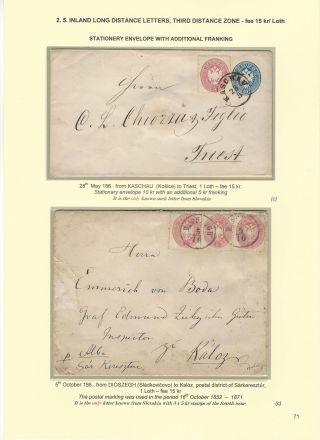 2. 5. INLAND LONG DISTANCE LETTERS, THIRD DISTANCE ZONE - fee 15 kr/ Loth
STATIONERY ENVELOPE WITH ADDITIONAL FRANKING
Herrn
C. L. & Figlio
Triest
28th May 186.. from KASCHAU (Košice) to Triest, 1 Loth – fee 15 kr.
Stationery envelope 10 kr with an additional 5 kr franking
It is the only known such letter from Slovakia
(c)
Herrn
Emmerich von Boda
Graf Edmund Güter
Inspector
p. Alba
Sár Keresztur
Kaloz
5th October 186.. from DIOSZEGH (Sládkovičovo) to Kalóz, postal district of Sárkeresztúr,
1 Loth – fee 15 kr.
The postal marking was used in the period 16th October 1852 – 1871
It is the only letter known from Slovakia with 3 x 5 kr stamps of the fourth issue
(c)
71